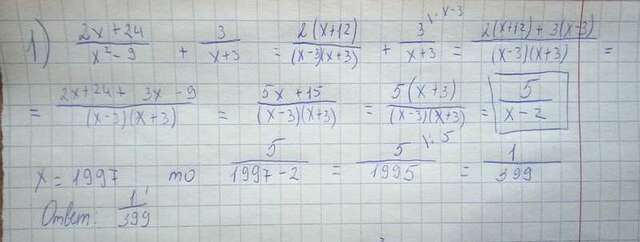 1) (2x+24)/(x²-9) + 3/(x+3) = 2(x+12)/((x-3)(x+3)) + 3^{\·x-3}/(x+3) = (2(x+12)+3(x-3))/((x-3)(x+3)) =
= (2x+24+3x-9)/((x-3)(x+3)) = (5x+15)/((x-3)(x+3)) = 5(x+3)/((x-3)(x+3)) = 5/(x-2)
x=1997 то 5/(1997-2) = 5^{\:5}/1995 = 1/399
Ответ: 1/399